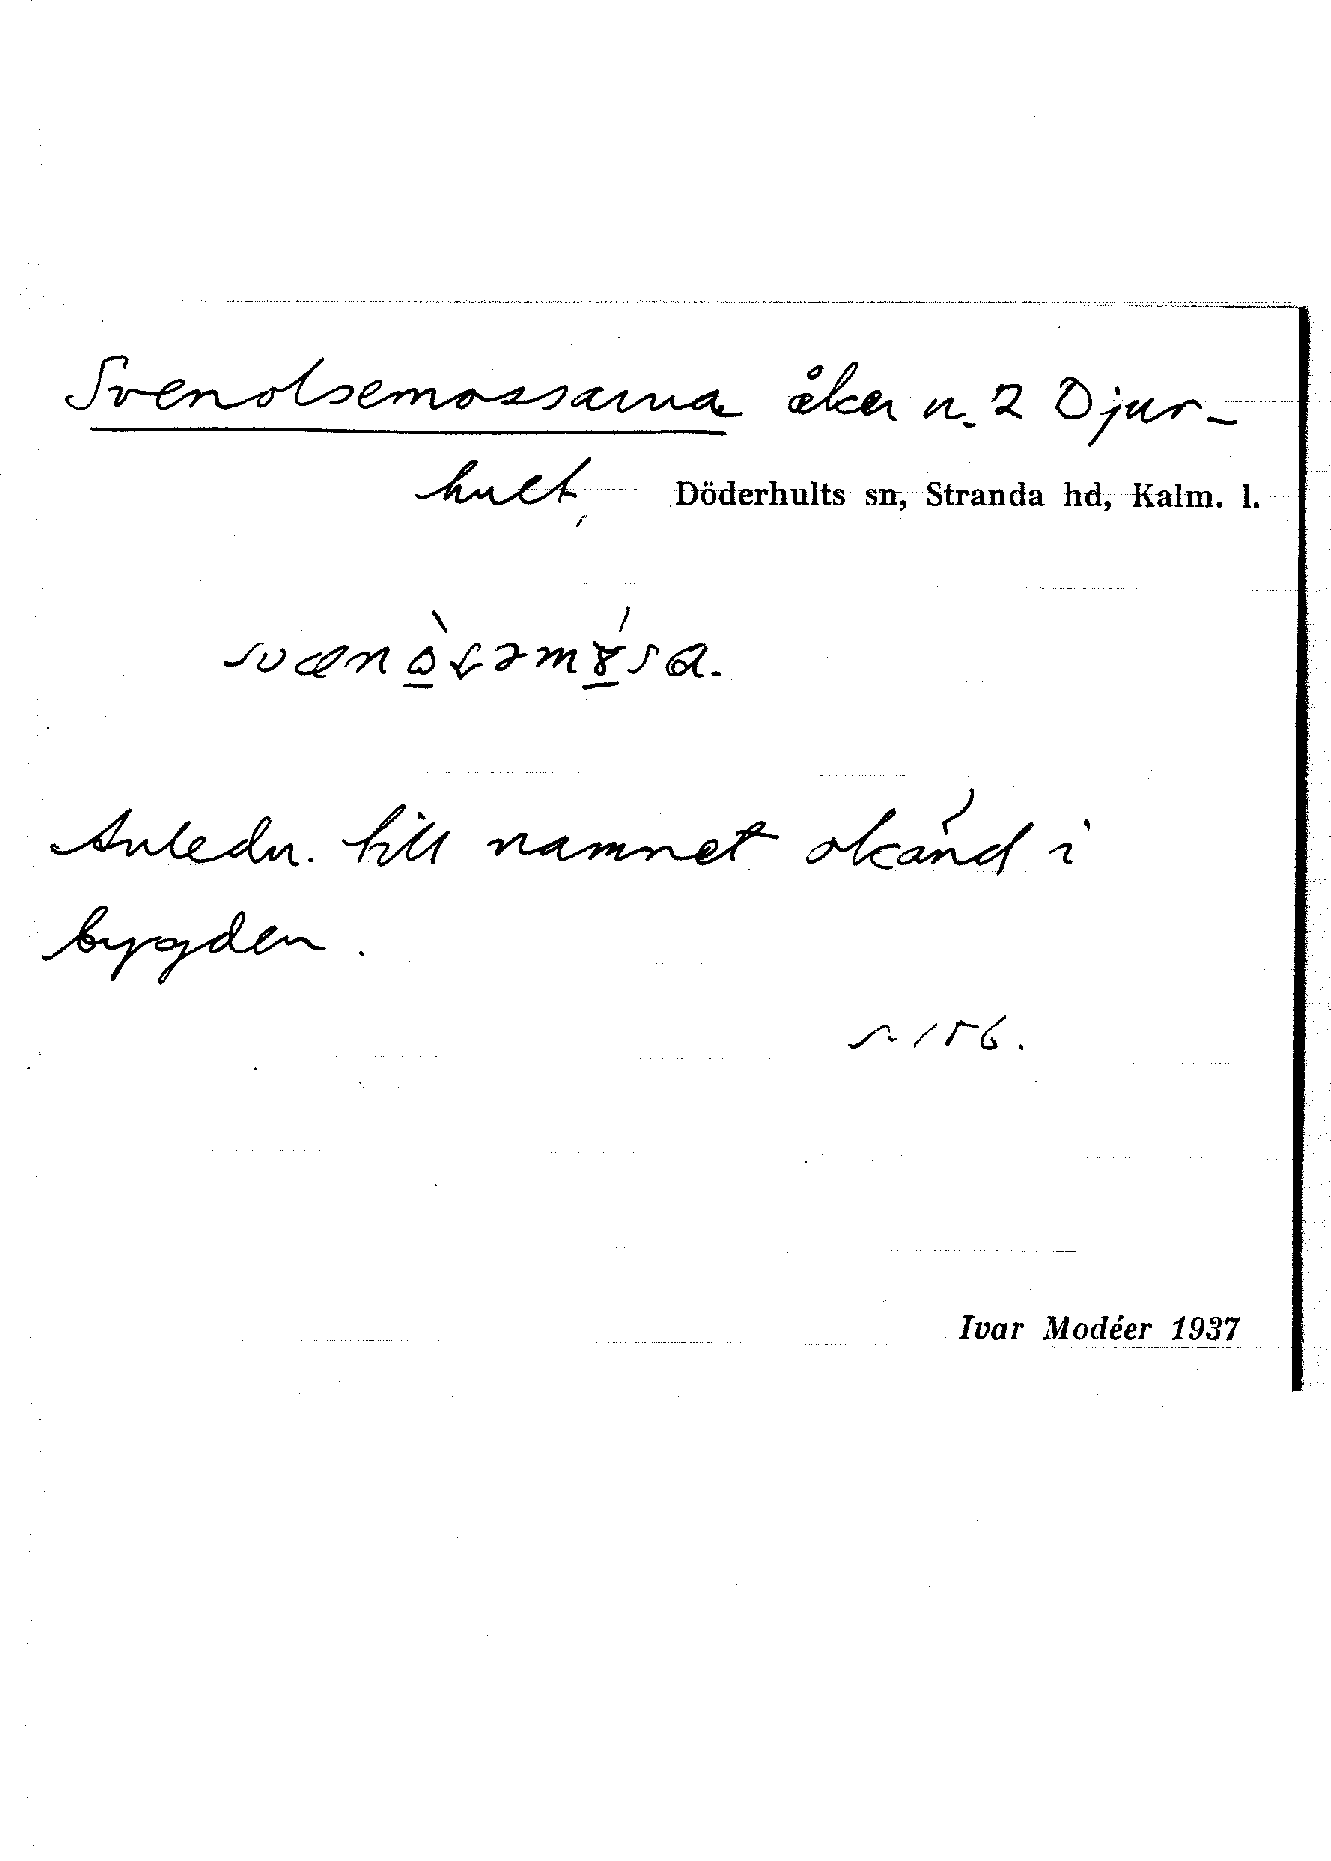 Svenolsemossarna åker n. 2 Djur-
hult, Döderhults sn, Stranda hd, Kalm. l.
Anledn. till namnet okänd i
bygden.
s. 156.
Ivar Modéer 1937